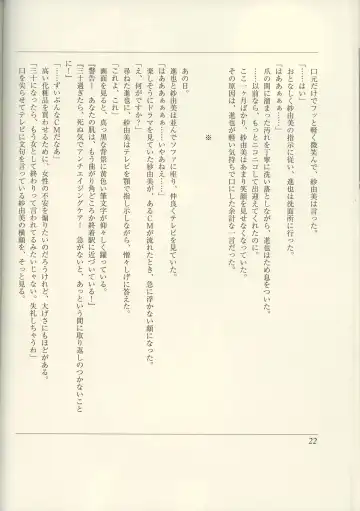 口元だけでフッと軽く微笑んで、紗由美は言った。
「……はい」
おとなしく紗由美の指示に従い、進也は洗面所に行った。
爪の間に溜まった汚れを丁寧に洗い落としながら、進也はため息をついた。
……以前なら、もっとニコニコして出迎えてくれたのに。
ここ一ヶ月ばかり、紗由美はあまり笑顔を見せなくなっていた。
その原因は、進也が軽い気持ちで口にした余計な一言だった。
※
あの日。
進也と紗由美は並んでソファに座り、仲良くテレビを見ていた。
「はあああぁぁぁ……いやあねえ……」
楽しそうにドラマを見ていた紗由美が、あるCMが流れたとき、急に浮かない顔になった。
「え、何がですか？」
尋ねた進也に、紗由美はテレビを顎で指し示しながら、憎々しげに答えた。
「これよ、これ」
画面を見ると、真っ黒な背景に黄色い筆文字が仰々しく躍っている。
『警告！　あなたの肌は、もう曲がり角どころか終着駅に近づいている！』
『三十過ぎたら、死ぬ気でアンチエイジングケア！　急がないと、あっという間に取り返しのつかないことに！』
「……ずいぶんなCMだなあ」
高い化粧品を買わせるために、女性の不安を煽りたいのだろうけれど、大げさにもほどがある。
「三十になったら、もう女として終わりって言われてるみたいじゃない。失礼しちゃうわ」
口を尖らせてテレビに文句を言っている紗由美の横顔を、そっと見る。
22